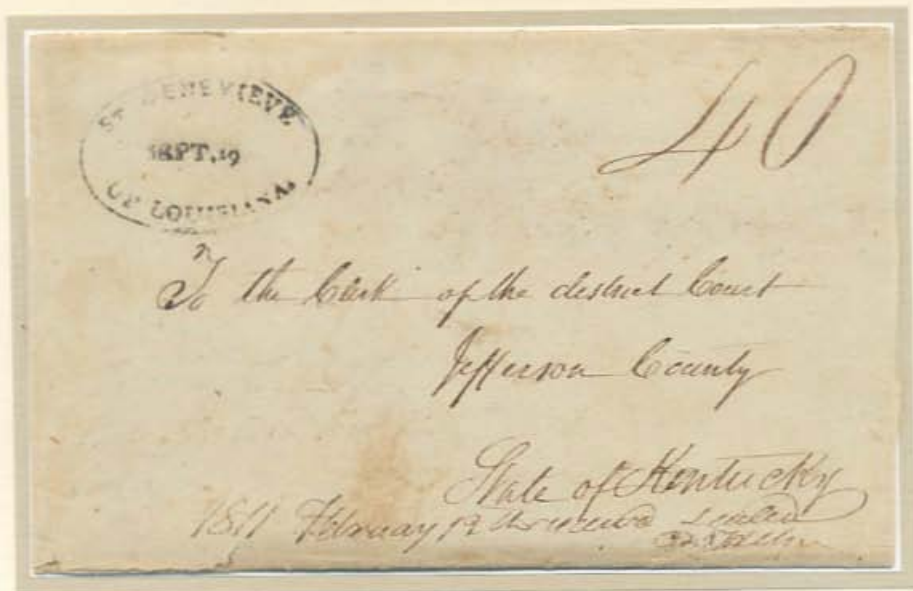 ST. GENEVIEVE
SEPT. 19
OF LOUISIANA.
40
To the Clerk of the district Court
Jefferson County
State of Kentucky
1811 February 19 received Sealed